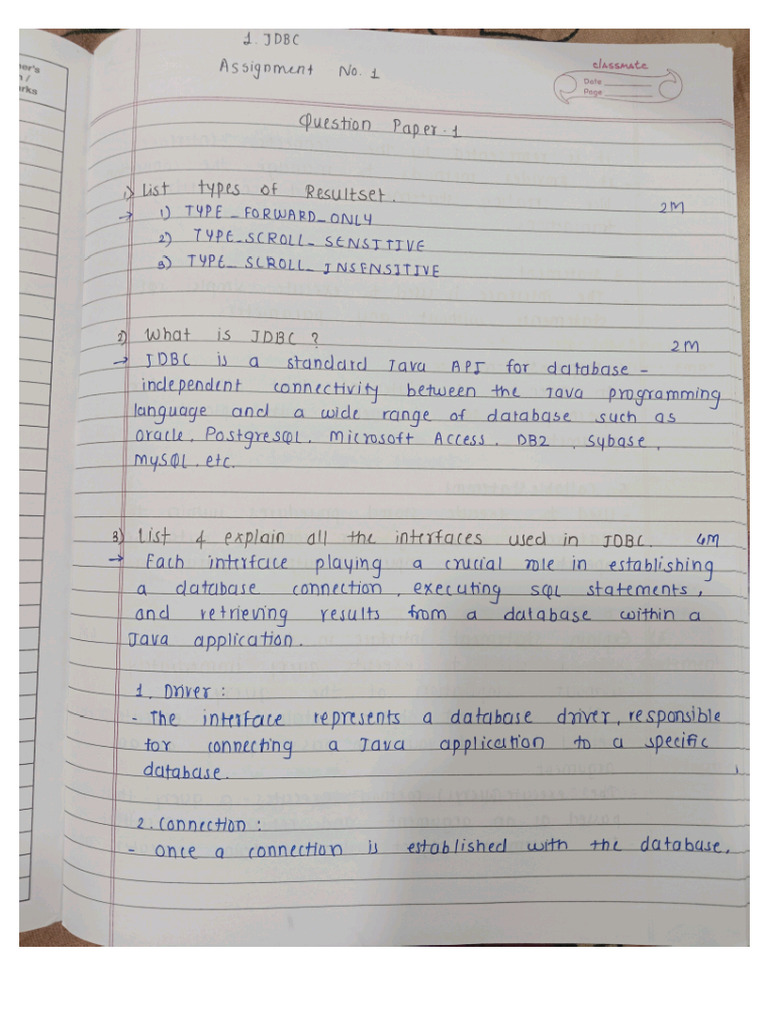 1. JDBC
Assignment No. 1
classmate
Date
Page
Question Paper-1
1) List types of Resultset. 2M
→ 1) TYPE_FORWARD_ONLY
2) TYPE_SCROLL_SENSITIVE
3) TYPE_SCROLL_INSENSITIVE
2) What is JDBC ? 2M
→ JDBC is a standard Java API for database -
independent connectivity between the Java programming
language and a wide range of database such as
oracle, PostgresQL, Microsoft Access, DB2, Sybase,
MySQL, etc.
3) List & explain all the interfaces used in JDBC. 4M
→ Each interface playing a crucial role in establishing
a database connection, executing SQL statements,
and retrieving results from a database within a
Java application.
1. Driver :
- The interface represents a database driver, responsible
for connecting a Java application to a specific
database.
2. Connection :
- once a connection is established with the database,